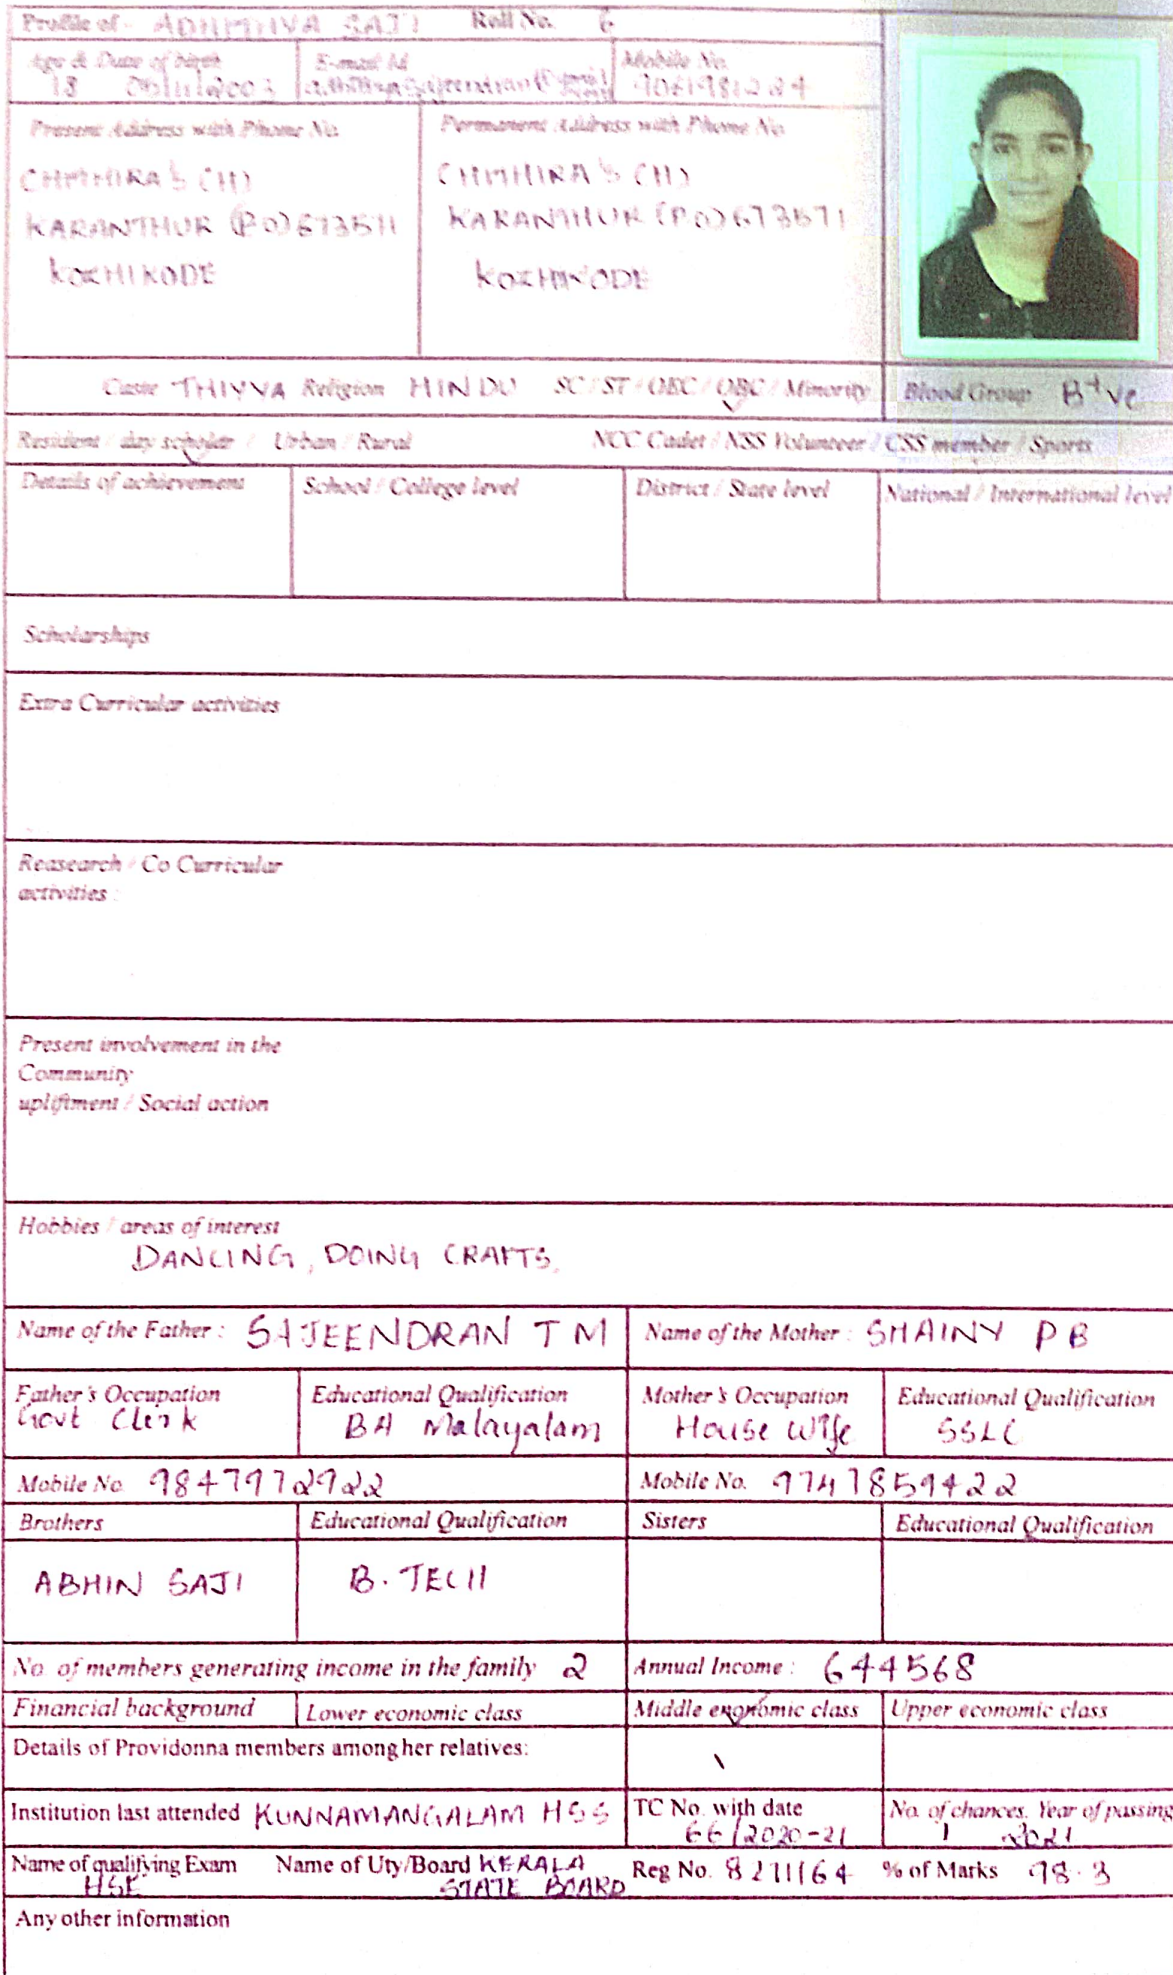 Profile of - ADHITHIYA SAJI Roll No. 6
Age & Date of birth E-mail Id Mobile No.
18 05/11/2003
Present Address with Phone No. Permanent Address with Phone No.
CHITHIRA'S (H) CHITHIRA'S (H)
KARANTHUR (PO) 673571 KARANTHUR (PO) 673571
KOZHIKODE KOZHIKODE
Caste THIYYA Religion HINDU SC / ST / OEC / OBC / Minority Blood Group B+ve
Resident / day scholar / Urban / Rural NCC Cadet / NSS Volunteer / CSS member / Sports
Details of achievement School / College level District / State level National / International level
Scholarships
Extra Curricular activities
Reasearch / Co Curricular
activities :
Present involvement in the
Community
upliftment / Social action
Hobbies / areas of interest
DANCING, DOING CRAFTS.
Name of the Father : SAJEENDRAN T M Name of the Mother : SHAINY P B
Father's Occupation Educational Qualification Mother's Occupation Educational Qualification
Govt Clerk BA Malayalam House Wife SSLC
Mobile No. 9847972922 Mobile No. 9747859422
Brothers Educational Qualification Sisters Educational Qualification
ABHIN SAJI B.TECH
No. of members generating income in the family 2 Annual Income : 644568
Financial background Lower economic class Middle economic class Upper economic class
Details of Providonna members among her relatives:
Institution last attended KUNNAMANGALAM HSS TC No. with date No. of chances. Year of passing
66/2020-21 1 2021
Name of qualifying Exam Name of Uty/Board KERALA Reg No. 8271164 % of Marks 98.3
HSE STATE BOARD
Any other information